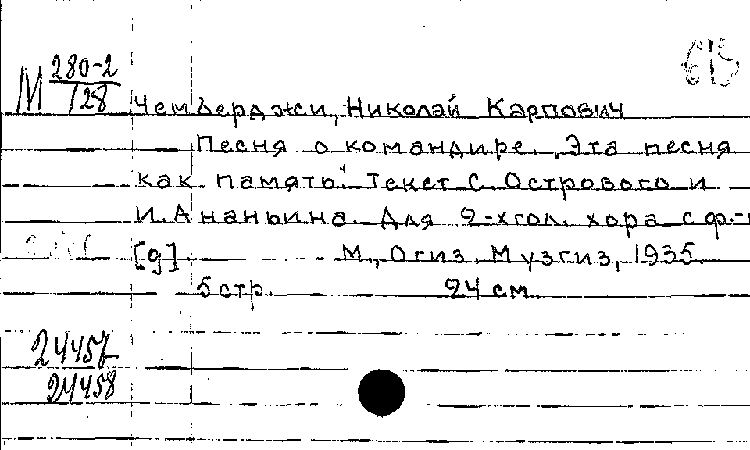 М 280-2
128
Чемберджи, Николай Карпович
Песня о командире. „Эта песня
как память". Текст С. Острового и
И. Ананьина. Для 2-хгол. хора с ф.-
[д]. М., Огиз. Музгиз, 1935.
5 стр. 24 см.
24457
24458